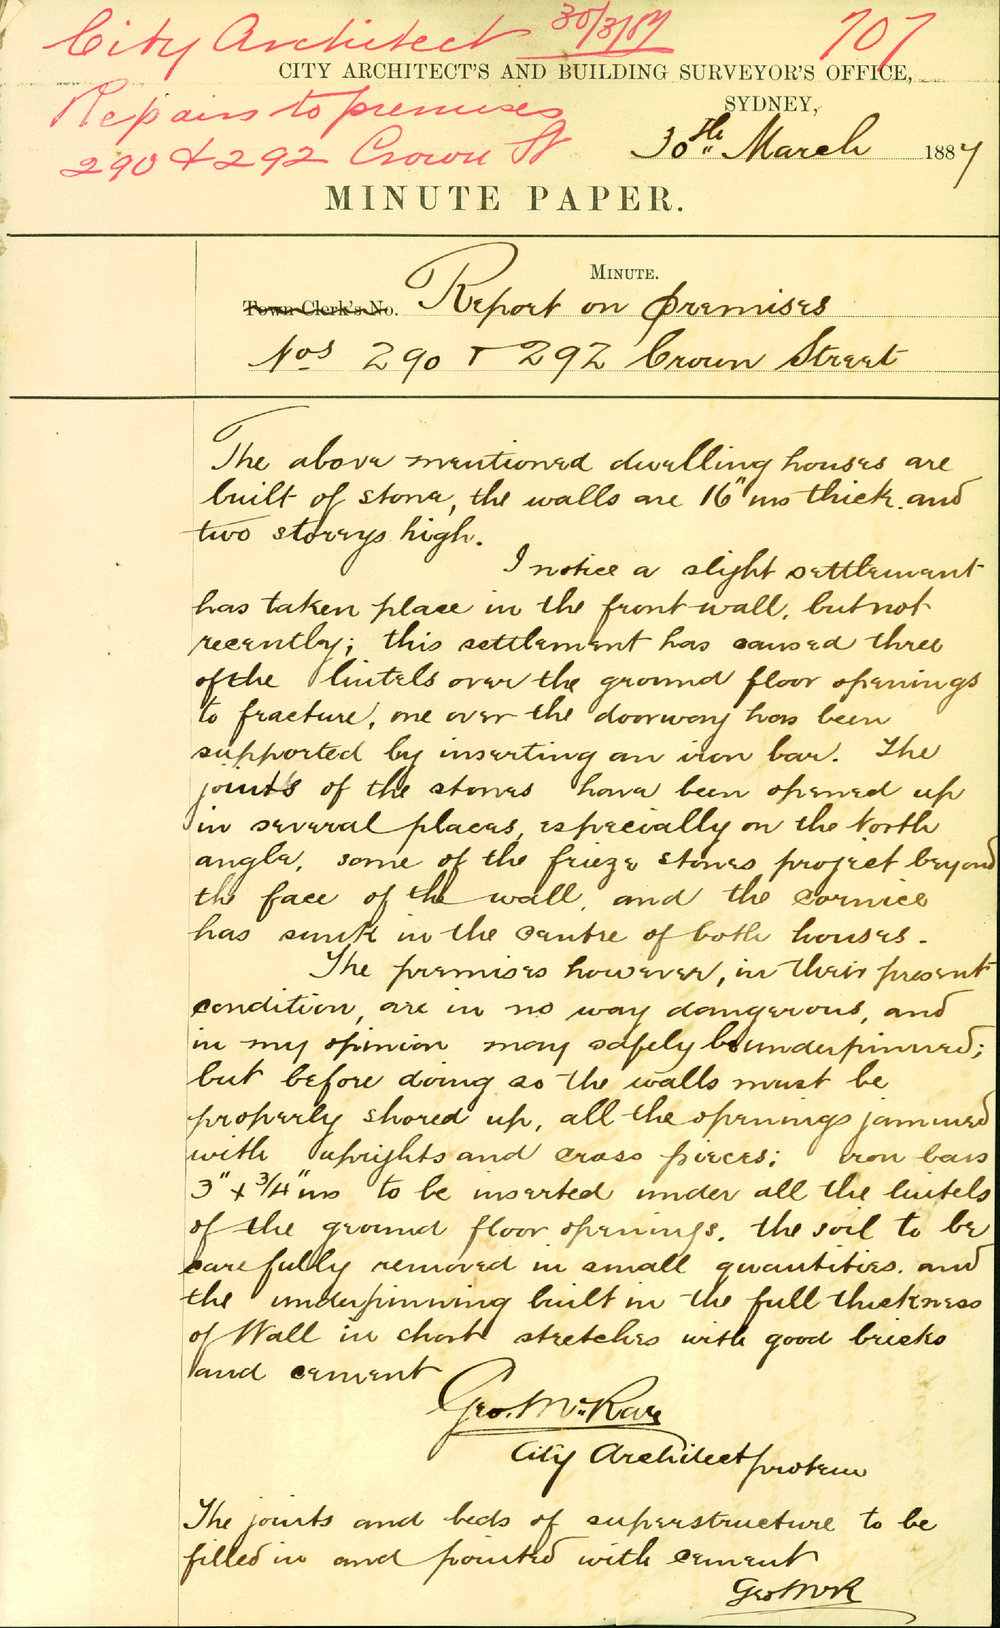 City Architect 30/3/87 707
CITY ARCHITECT'S AND BUILDING SURVEYOR'S OFFICE,
Repairs to premises
SYDNEY,
290 & 292 Crown St
30th March 1887
MINUTE PAPER.
MINUTE.
Town Clerk's No. Report on premises
Nos 290 & 292 Crown Street
The above mentioned dwelling houses are
built of stone, the walls are 16"ins thick. and
two storeys high.
I notice a slight settlement
has taken place in the front wall, but not
recently; this settlement has caused three
of the lintels over the ground floor openings
to fracture, one over the doorway has been
supported by inserting an iron bar. The
joints of the stones have been opened up
in several places, especially on the North
angle, some of the frieze stones project beyond
the face of the wall, and the cornice
has sunk in the centre of both houses.
The premises however, in their present
condition, are in no way dangerous, and
in my opinion may safely be underpinned;
but before doing so the walls must be
properly shored up, all the openings jammed
with uprights and cross pieces; iron bars
3" x 3/4"ins to be inserted under all the lintels
of the ground floor openings. the soil to be
carefully removed in small quantities. and
the underpinning built in the full thickness
of Wall in short stretches with good bricks
and cement
Geo. McRae
City Architect protem
The joints and beds of superstructure to be
filled in and pointed with cement
Geo McR